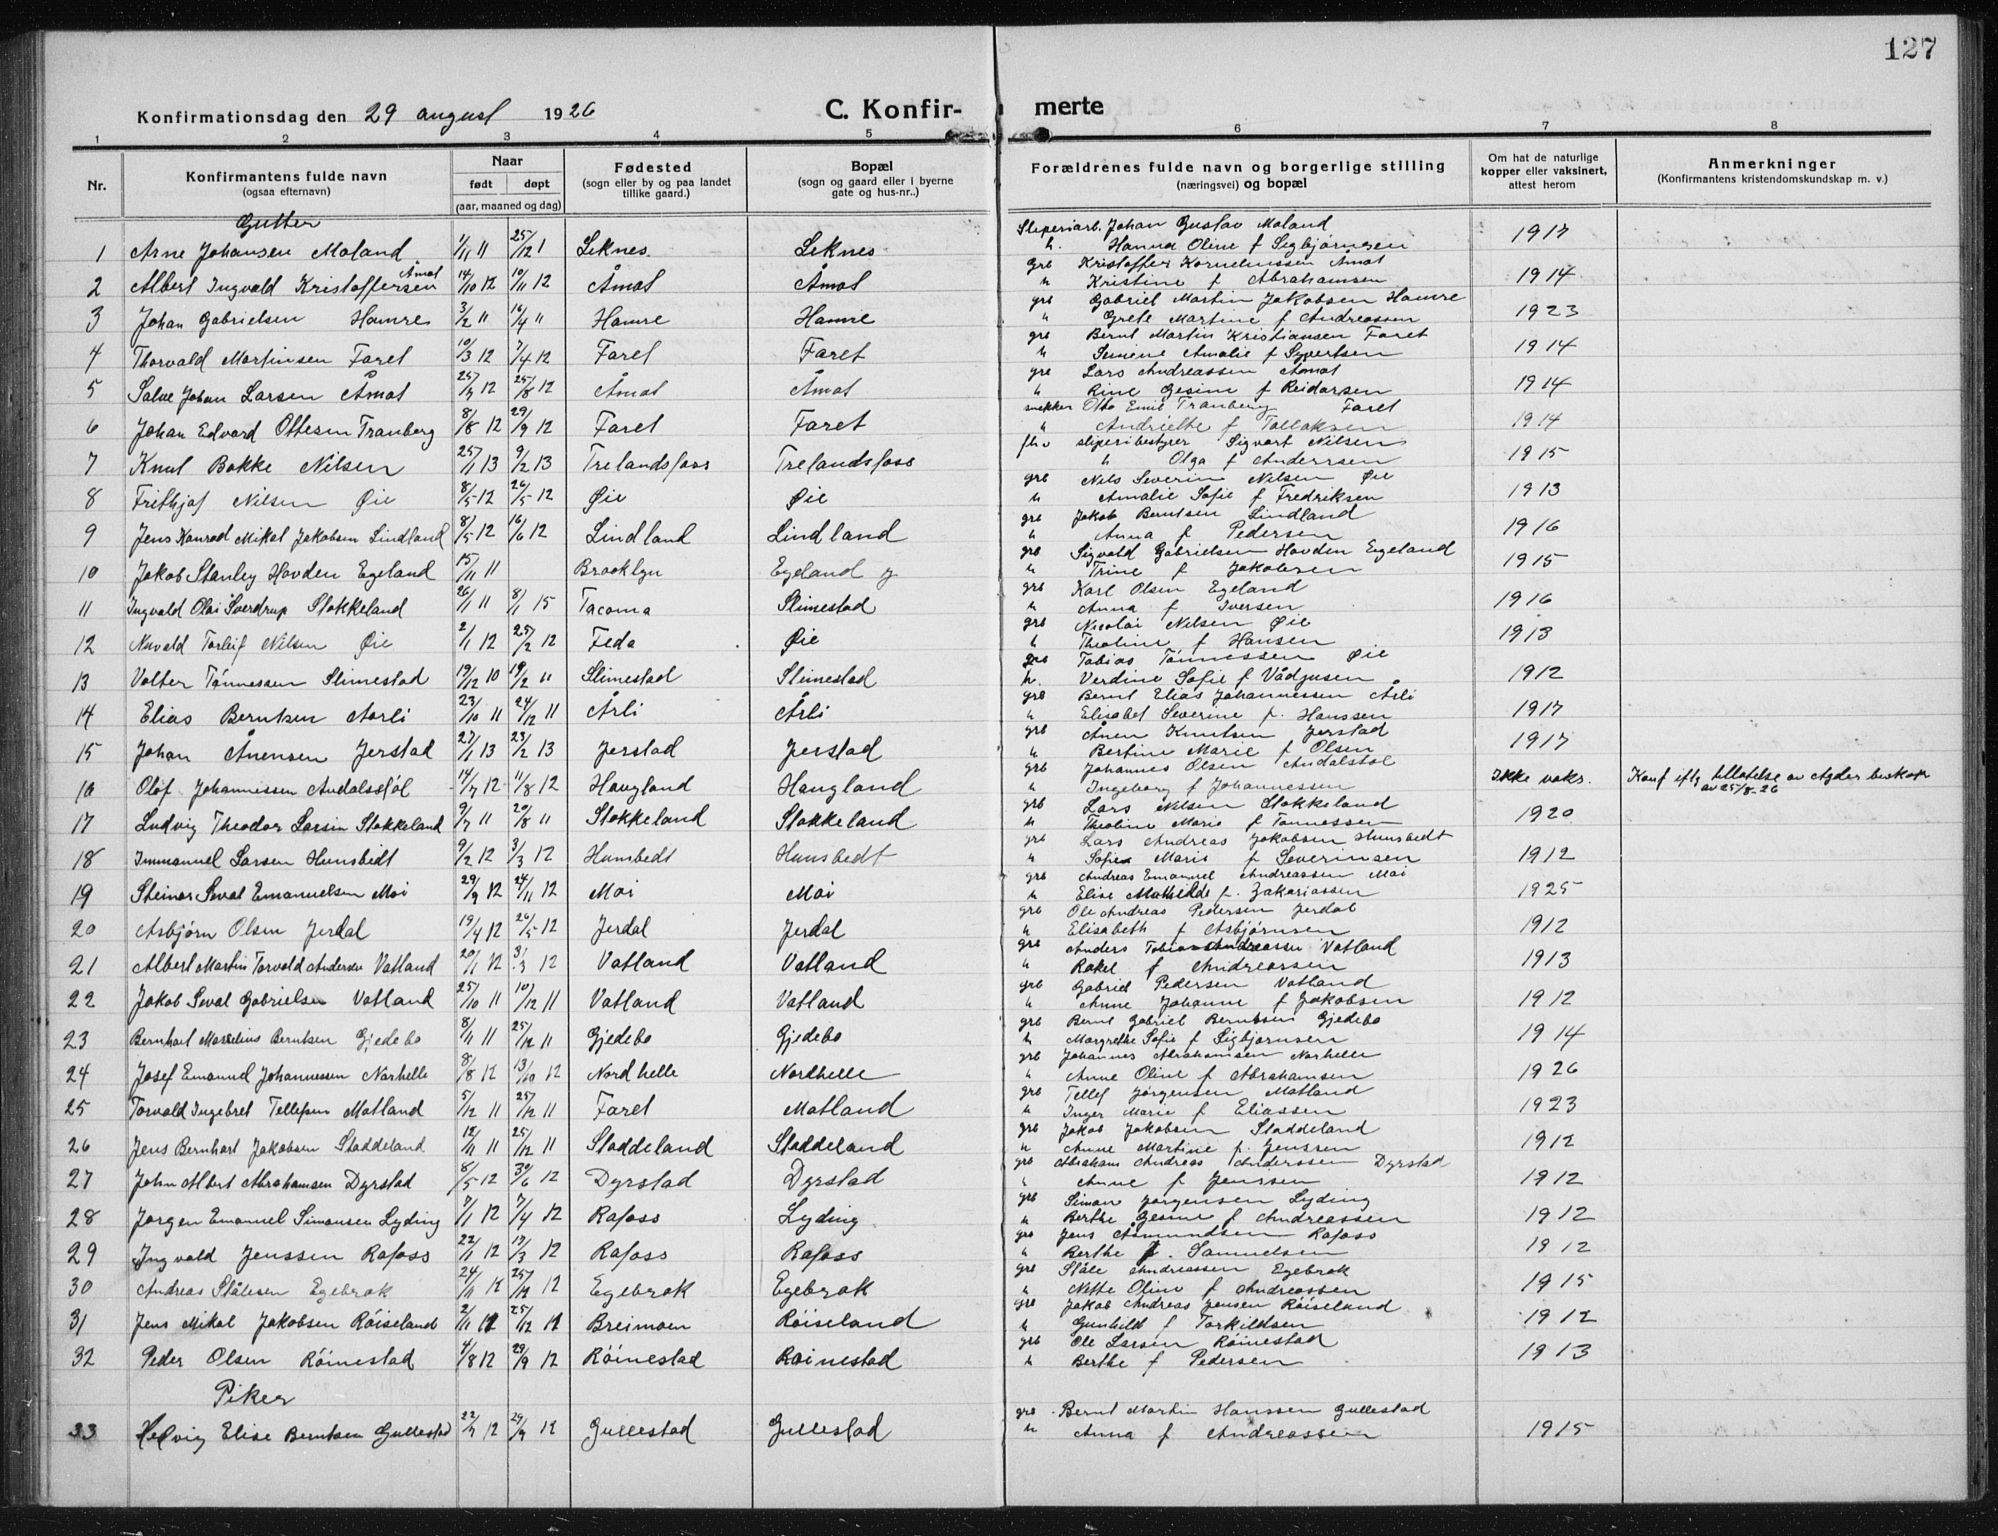 127
Konfirmationsdag den 29 august 1926
C. Konfirmerte
1 2 3 4 5 6 7 8
Nr.
Konfirmantens fulde navn
(ogsaa efternavn)
Naar
født døpt
(aar, maaned og dag)
Fødested
(sogn eller by og paa landet
tillike gaard.)
Bopæl
(sogn og gaard eller i byerne
gate og hus-nr..)
Forældrenes fulde navn og borgerlige stilling
(næringsvei) og bopæl
Om hat de naturlige
kopper eller vaksinert,
attest herom
Anmerkninger
(Konfirmantens kristendomskundskap m. v.)
Gutter
1 Arne Johansen Moland 1/11 11 25/12 1 Leknes Leknes Sliperiarb. Johan Gustav Moland 1917
h. Hanna Oline f Sigbjørnsen
2 Albert Ingvald Kristoffersen Åmot 14/10 12 10/11 12 Åmot Åmot Grb Kristoffer Kornelinssen Åmot 1914
h Kristine f Abrahamsen
3 Johan Gabrielsen Hamre 3/2 11 16/4 11 Hamre Hamre grb Gabriel Martin Jakobsen Hamre 1923
h Grete Martine f Andreassen
4 Thorvald Martinsen Faret 10/3 12 7/4 12 Faret Faret grb Bernt Martin Kristiansen Faret 1914
h Amalie f Syvertsen
5 Salve Johan Larsen Åmot 25/7 12 25/8 12 Åmot Åmot grb Lars Andreassen Åmot 1914
h Rine Gesine f Reidarsen
6 Johan Edvard Ottesen Tranberg 8/8 12 29/9 12 Faret Faret snekker Otto Emil Tranberg Faret 1914
h Andriette f Tollaksen
7 Knut Bakke Nilsen 25/1 13 9/2 13 Trelandsfoss Trelandsfoss fhv sliperibestyrer Sigvart Nilsen 1915
h Olga f Anderssen
8 Frithjof Nilsen Øie 8/5 12 26/5 12 Øie Øie grb Nils Severin Nilsen Øie 1913
h Amalie Sofie f Fredriksen
9 Jens Konrad Mikal Jakobsen Lindland 8/5 12 16/6 12 Lindland Lindland grb Jakob Berntsen Lindland 1916
h Anna f Pedersen
10 Jakob Stanley Hovden Egeland 15/11 11 Brooklyn Egeland y grb Sigvald Gabrielsen Hovden Egeland 1915
h Trine f Jakobsen
11 Ingvald Olai Sverdrup Stokkeland 26/1 11 8/1 15 Tacoma Slimestad grb Karl Olsen Egeland 1916
h Anna f Iversen
12 Torleif Nilsen Øie 2/1 12 25/2 12 Feda Øie grb Nicolai Nilsen Øie 1913
h Theoline f Hansen
13 Valter Tønnessen Slimestad 19/12 10 19/2 11 Slimestad Slimestad grb Tobias Tønnessen Øie 1912
h. Verdine Sofie f Vådjusen
14 Elias Berntsen Aarli 23/10 11 24/12 11 Årli Årli grb Bernt Elias Johannessen Årli 1917
h Elisabet Severine f. Hanssen
15 Johan Ånensen Jerstad 27/1 13 23/2 13 Jerstad Jerstad grb Ånen Knutsen Jerstad 1917
h Bertine Marie f Olsen
16 Olof Johannessen Andalsstøl 14/7 12 11/8 12 Haugland Haugland grb Johannes Olsen Andalstøl Ikke vaks. Konf iflg tillatelse av Agder biskop
av 25/8-26
h Ingeborg f Johannessen
17 Ludvig Theodor Larsen Stokkeland 9/7 11 20/8 11 Stokkeland Stokkeland grb Lars Nilsen Stokkeland 1920
h Theoline Marie f Tønnessen
18 Immanuel Larsen Hunsbedt 9/2 12 3/3 12 Hunsbedt Hunsbedt grb Lars Andreas Jakobsen Hunsbedt 1912
h Sofie Marie f Severinsen
19 Steinar Seval Emanuelsen Moi 29/9 12 24/11 12 Moi Moi grb Andreas Emanuel Andreassen Moi 1925
h Elise Mathilde f. Zakariassen
20 Asbjørn Olsen Jerdal 19/4 12 26/5 12 Jerdal Jerdal grb Ole Andreas Pedersen Jerdal 1912
h Elisabeth f Asbjørnsen
21 Albert Martin Torvald Andersen Vatland 20/1 12 31/3 12 Vatland Vatland grb Anders Tobias Andreassen Vatland 1913
h Rakel f Andreassen
22 Jakob Seval Gabrielsen Vatland 25/10 11 10/12 11 Vatland Vatland grb Gabriel Pedersen Vatland 1912
h Anne Johanne f Jakobsen
23 Bernhart Marselius Berntsen Gjedebo 8/11 11 25/12 11 Gjedebo Gjedebo grb Bernt Gabriel Berntsen Gjedebo 1914
h Margrethe Sofie f Sigbjørnsen
24 Josef Emanuel Johannessen Narhelle 8/8 12 13/10 12 Nordhelle Nordhelle grb Johannes Abrahamsen Narhelle 1926
h Anne Oline f Abrahamsen
25 Torvald Ingebret Tellefsen Matland 5/12 11 25/12 11 Faret Matland grb Tellef Jørgensen Matland 1923
h Inger Marie f Eliassen
26 Jens Bernhart Jakobsen Staddeland 12/11 11 25/12 11 Staddeland Staddeland grb Jakob Jakobsen Staddeland 1912
h Anne Martine f. Jenssen
27 John Albert Abrahamsen Dyrstad 8/5 12 30/6 12 Dyrstad Dyrstad grb Abraham Andreas Anderssen Dyrstad 1912
h Anne f Jenssen
28 Jørgen Emanuel Simonsen Lyding 7/1 12 7/4 12 Rafoss Lyding grb Simon Jørgensen Lyding 1912
h Berthe Gesine f Andreassen
29 Ingvald Jenssen Rafoss 22/1 12 17/3 12 Rafoss Rafoss grb Jens Åsmundsen Rafoss 1912
h Berthe f. Samuelsen
30 Andreas Stålesen Egebrok 24/11 12 25/12 12 Egebrok Egebrok grb Ståle Andreassen Egebrok 1915
h Nette Oline f Andreassen
31 Jens Mikal Jakobsen Røiseland 2/11 12 25/12 12 Breimoen Røiseland grb Jakob Andreas Jensen Røiseland 1912
h Gunhild f Torkildsen
32 Peder Olsen Røinestad 4/8 12 29/9 12 Røinestad Roinestad grb Ole Larsen Røinestad 1913
h Berthe f Pedersen
Piker
33 Helvig Elise Berntsen Gullestad 22/7 12 29/9 12 Gullestad Gullestad grb Bernt Martin Hanssen Gullestad 1915
h Anna f Andreassen